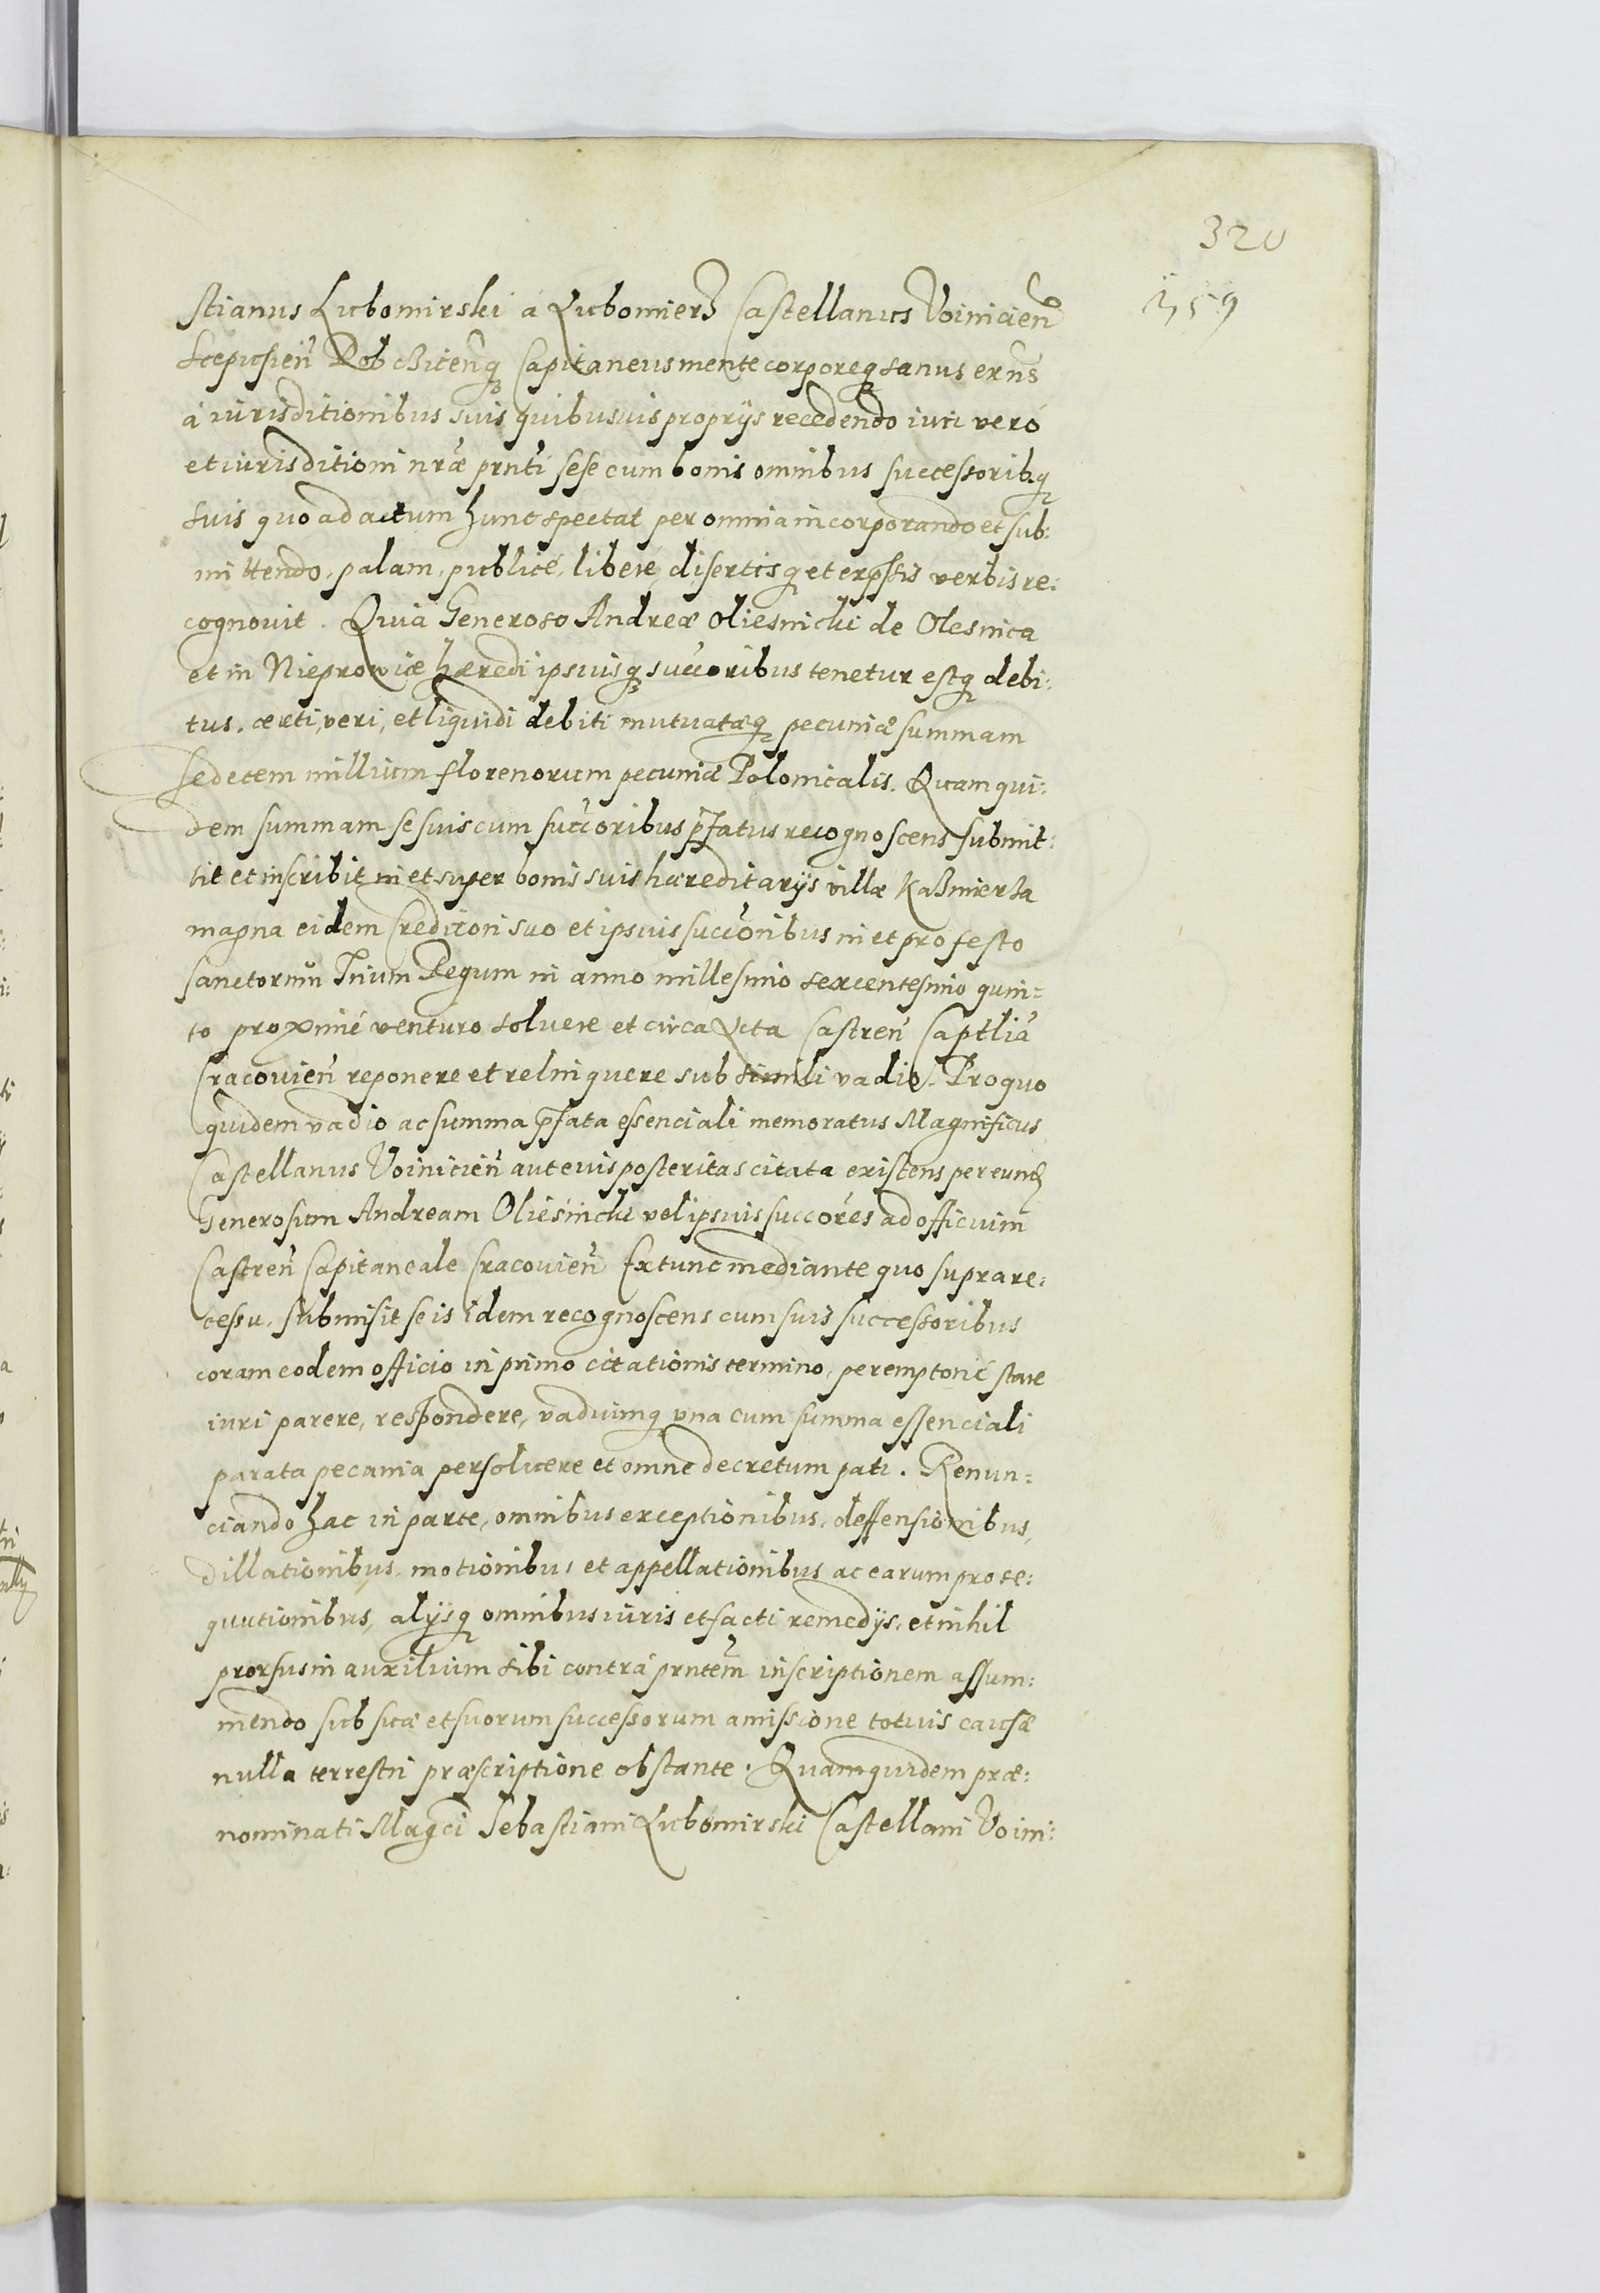 320
359
stianus Lubomirski á Lubomierz Castellanus Voinicien̄
Scepusien̄ Dobcziten̄q₃ Capitaneus mente corporeq₃ sanus exn̄s
á iurisditionibus suis quibusuis proprijs recedendo iuri veró
et iurisditioni nr̄æ prn̄ti sese cum bonis omnibus successorib.q₃
suis quo ad actum hunc spectat per omnia incorporando et sub:
mittendo, palam, publicé, liberé, disertisq₃ et expssis verbis re:
cognouit. Quia Generoso Andreæ Oliesnicki de Olesnica
et in Nieprowice hæredi ipsiusq₃ succ̄oribus tenetur estq₃ debi:
tus, certi, veri, et liquidi debiti mutuatæq₃ pecuniæ summam
sedecem millium florenorum pecuniæ Polonicalis. Quam qui:
dem summam se suis cum succ̄oribus p̄fatus recognoscens submit:
tit et inscribit in et super bonis suis hæreditarijs villæ Kaźmierza
magna eidem Creditori suo et ipsius succ̄oribus in et pro festo
sanctorum̄ Trium Regum in anno millesimo sexcentesimo quin=
to proximé venturo soluere et circa Acta Castren̄ Captl̄ia
Cracouien̄ reponere et relinquere sub simili vadio. Pro quo
quidem vadio ac summa p̄fata essenciali memoratus Magnificus
Castellanus Voinicien̄ aut eius posteritas citata existens per eund
Generosum Andream Oliésnicki vel ipsius succ̄ores ad officium
Castren̄ Capitaneale Cracouien̄ Extunc mediante quo supra re:
cessu, submisit se is idem recognoscens cum suis successoribus
coram eodem officio in primo citationis termino, peremptorié stare
iuri parere, respondere, vadiumq₃ vna cum summa essenciali
parata pecunia persoluere et omne decretum pati. Renun=
ciando hac in parte, omnibus exceptionibus, deffensionibus,
dillationibus, motionibus et appellationibus ac earum prose:
quutionibus, alijsq₃ omnibus iuris et facti remedijs, et nihil
prorsus in auxilium sibi contrá prn̄tem inscriptionem assum:
mendo sub suæ et suorum successorum amissione totius causæ
nulla terrestri præscriptione obstante. Quam quidem præ:
nominati Mag̃ci Sebastiani Lubomirski Castellani Voini: